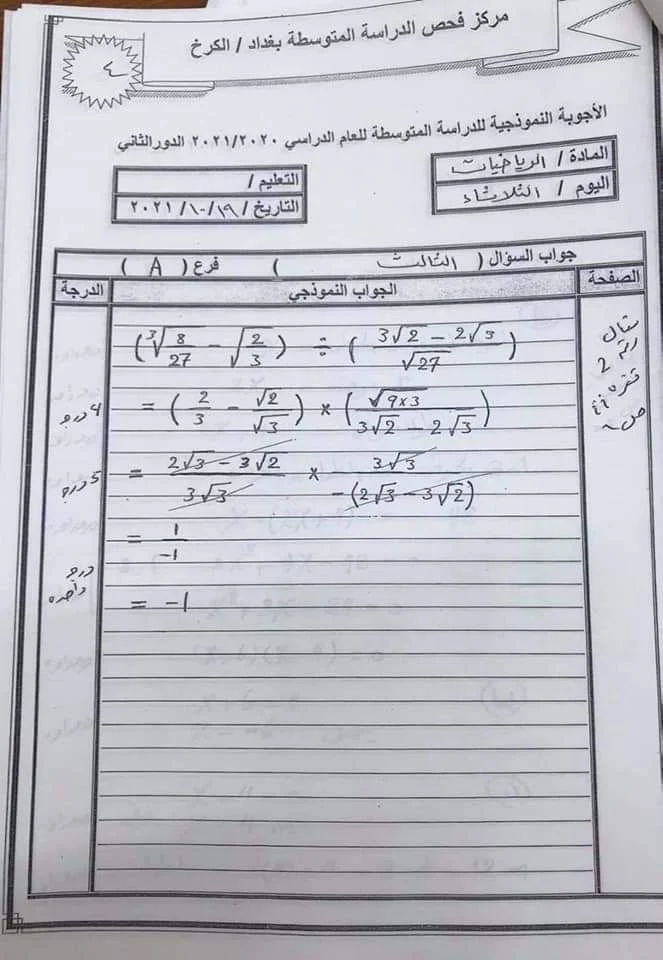 مركز فحص الدراسة المتوسطة بغداد / الكرخ
٤
الأجوبة النموذجية للدراسة المتوسطة للعام الدراسي ٢٠٢١/٢٠٢٠ الدورالثاني
المادة / الرياضيات
اليوم / الثلاثاء
التعليم /
التاريخ / ١٩/ ١٠/ ٢٠٢١
جواب السؤال ( الثالث ) فرع ( A )
الصفحة الجواب النموذجي الدرجة
(∛(8/27) − √(2/3)) ÷ ((3√2 − 2√3)/√27)
= (2/3 − √2/√3) × (√(9×3)/(3√2 − 2√3))
4 درجة
= (2√3 − 3√2)/(3√3) × (3√3)/(−(2√3 − 3√2))
5 درجة
= 1/−1
= −1
درجة واحدة